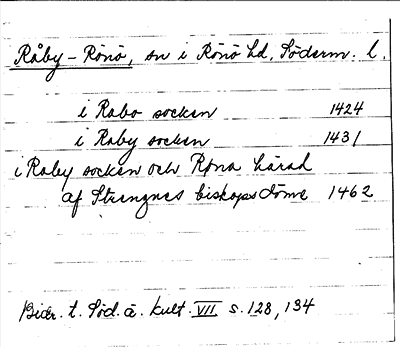 Råby-Rönö, sn i Rönö hd, Söderm. l.
i Rabo socken 1424
i Raby socken 1431
i Raby socken och Rona härad
af Strengnes biskopsdöme 1462
Bidr. t. Söd. ä. kult. VII s. 128, 134